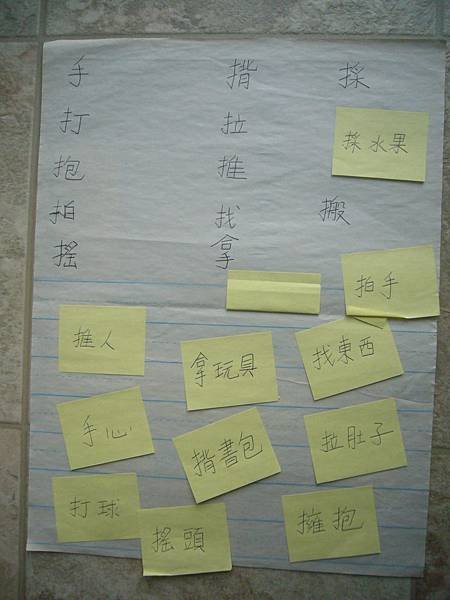 手 揹 採
打 拉
採水果
抱 推
拍 找 搬
搖 拿
拍手
推人
拿玩具
找東西
手心
揹書包
拉肚子
打球
搖頭
擁抱